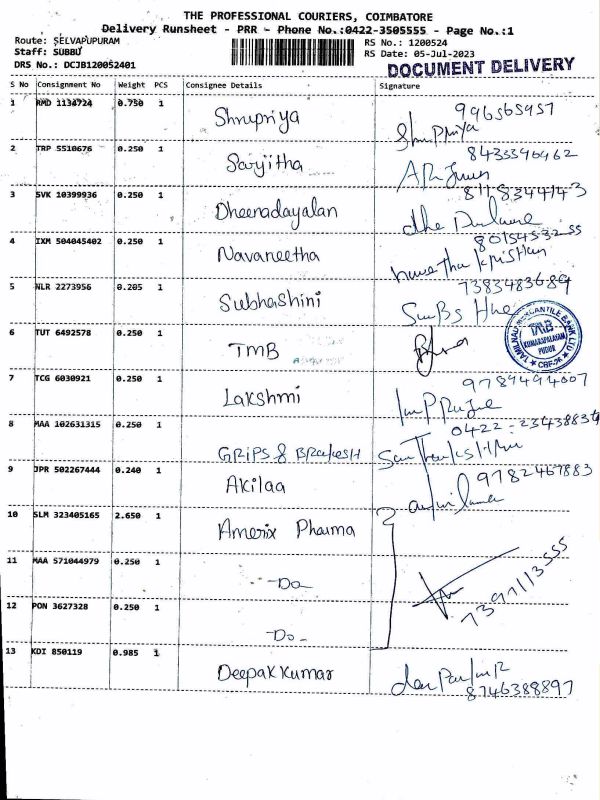 THE PROFESSIONAL COURIERS, COIMBATORE
Delivery Runsheet - PRR - Phone No.:0422-3505555 - Page No.:1
Route: SELVAPUPURAM
RS No.: 1200524
Staff: SUBBU
RS Date: 05-Jul-2023
DRS No.: DCJB120052401
DOCUMENT DELIVERY
S No Consignment No Weight PCS Consignee Details Signature
1 RMD 1134724 0.750 1 Shrupriya
996565957
2 TRP 5510676 0.250 1 Sarjitha
8435546462
3 SVK 10399936 0.250 1 Dheenadayalan
8118344143
4 IXM 504045402 0.250 1 Navaneetha
5 NLR 2273956 0.205 1 Subhashini
7383483689
6 TUT 6492578 0.250 1 TMB
TAMILNAD MERCANTILE BANK LTD
TMB
KUMARAPALAYAM
PUDUR
7 TCG 6030921 0.250 1 Lakshmi
9789494007
8 MAA 102631315 0.250 1 GRIPS & BRakesH
0422-23438834
9 JPR 502267444 0.240 1 Akilaa
9782467883
10 SLM 323405165 2.650 1 Amerix Pharma
11 MAA 571044979 0.250 1 -Do-
7397113555
12 PON 3627328 0.250 1 -Do-
13 KDI 850119 0.985 1 Deepak Kumar
8746388897